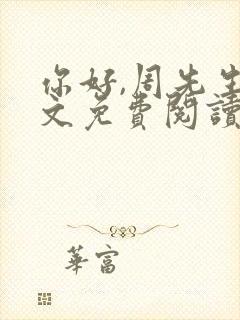 你好,周先生
文免費閱讀
華富